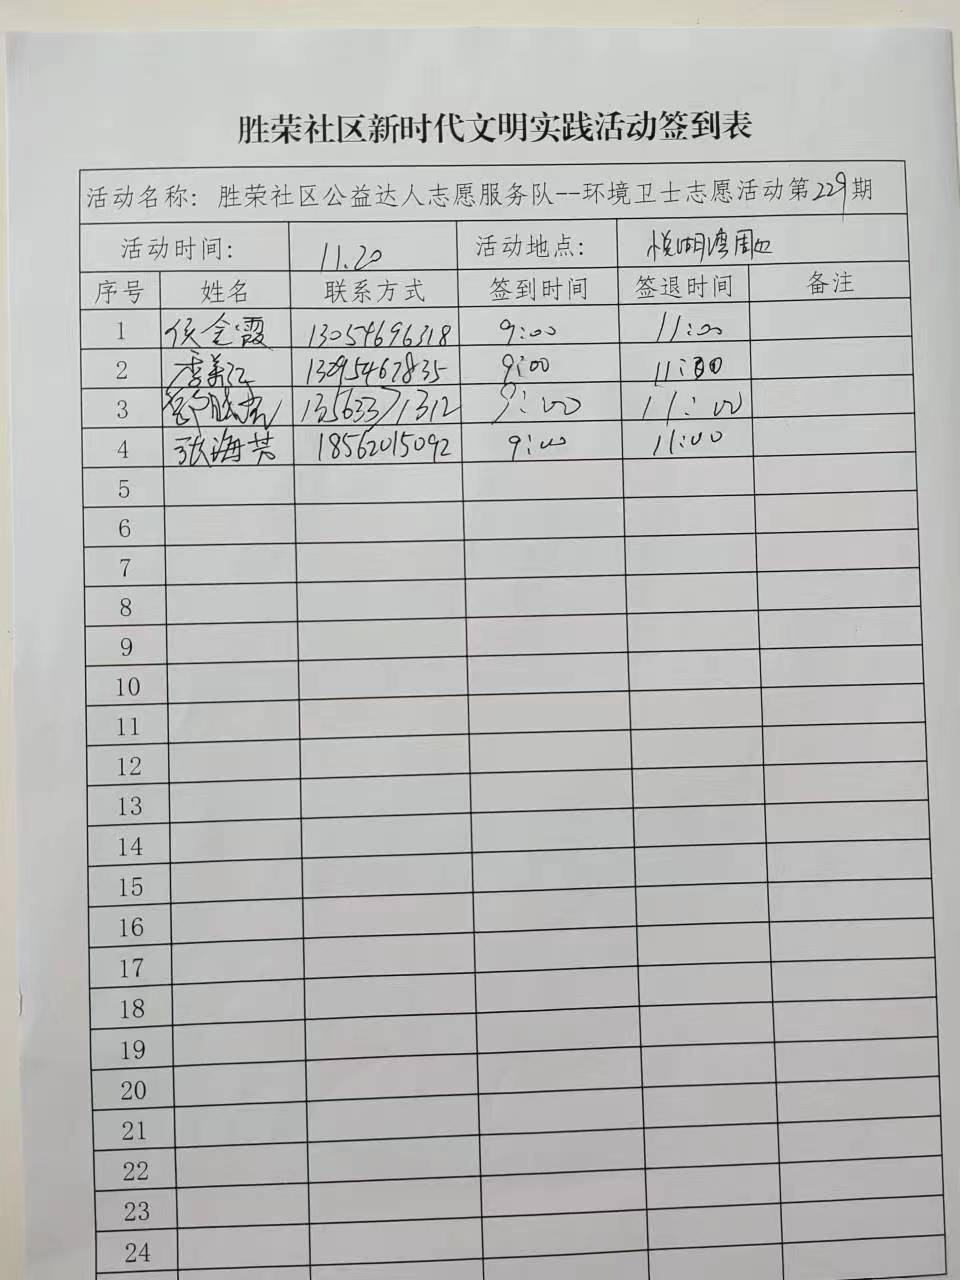 胜荣社区新时代文明实践活动签到表
活动名称：胜荣社区公益达人志愿服务队--环境卫士志愿活动第229期
活动时间： 11.20 活动地点： 悦湖湾周边
序号 姓名 联系方式 签到时间 签退时间 备注
1 侯金霞 13054696318 9:00 11:00
2 李美江 13295467835 9:00 11:00
3 13563371312 9:00 11:00
4 张海芸 18562015092 9:00 11:00
5
6
7
8
9
10
11
12
13
14
15
16
17
18
19
20
21
22
23
24